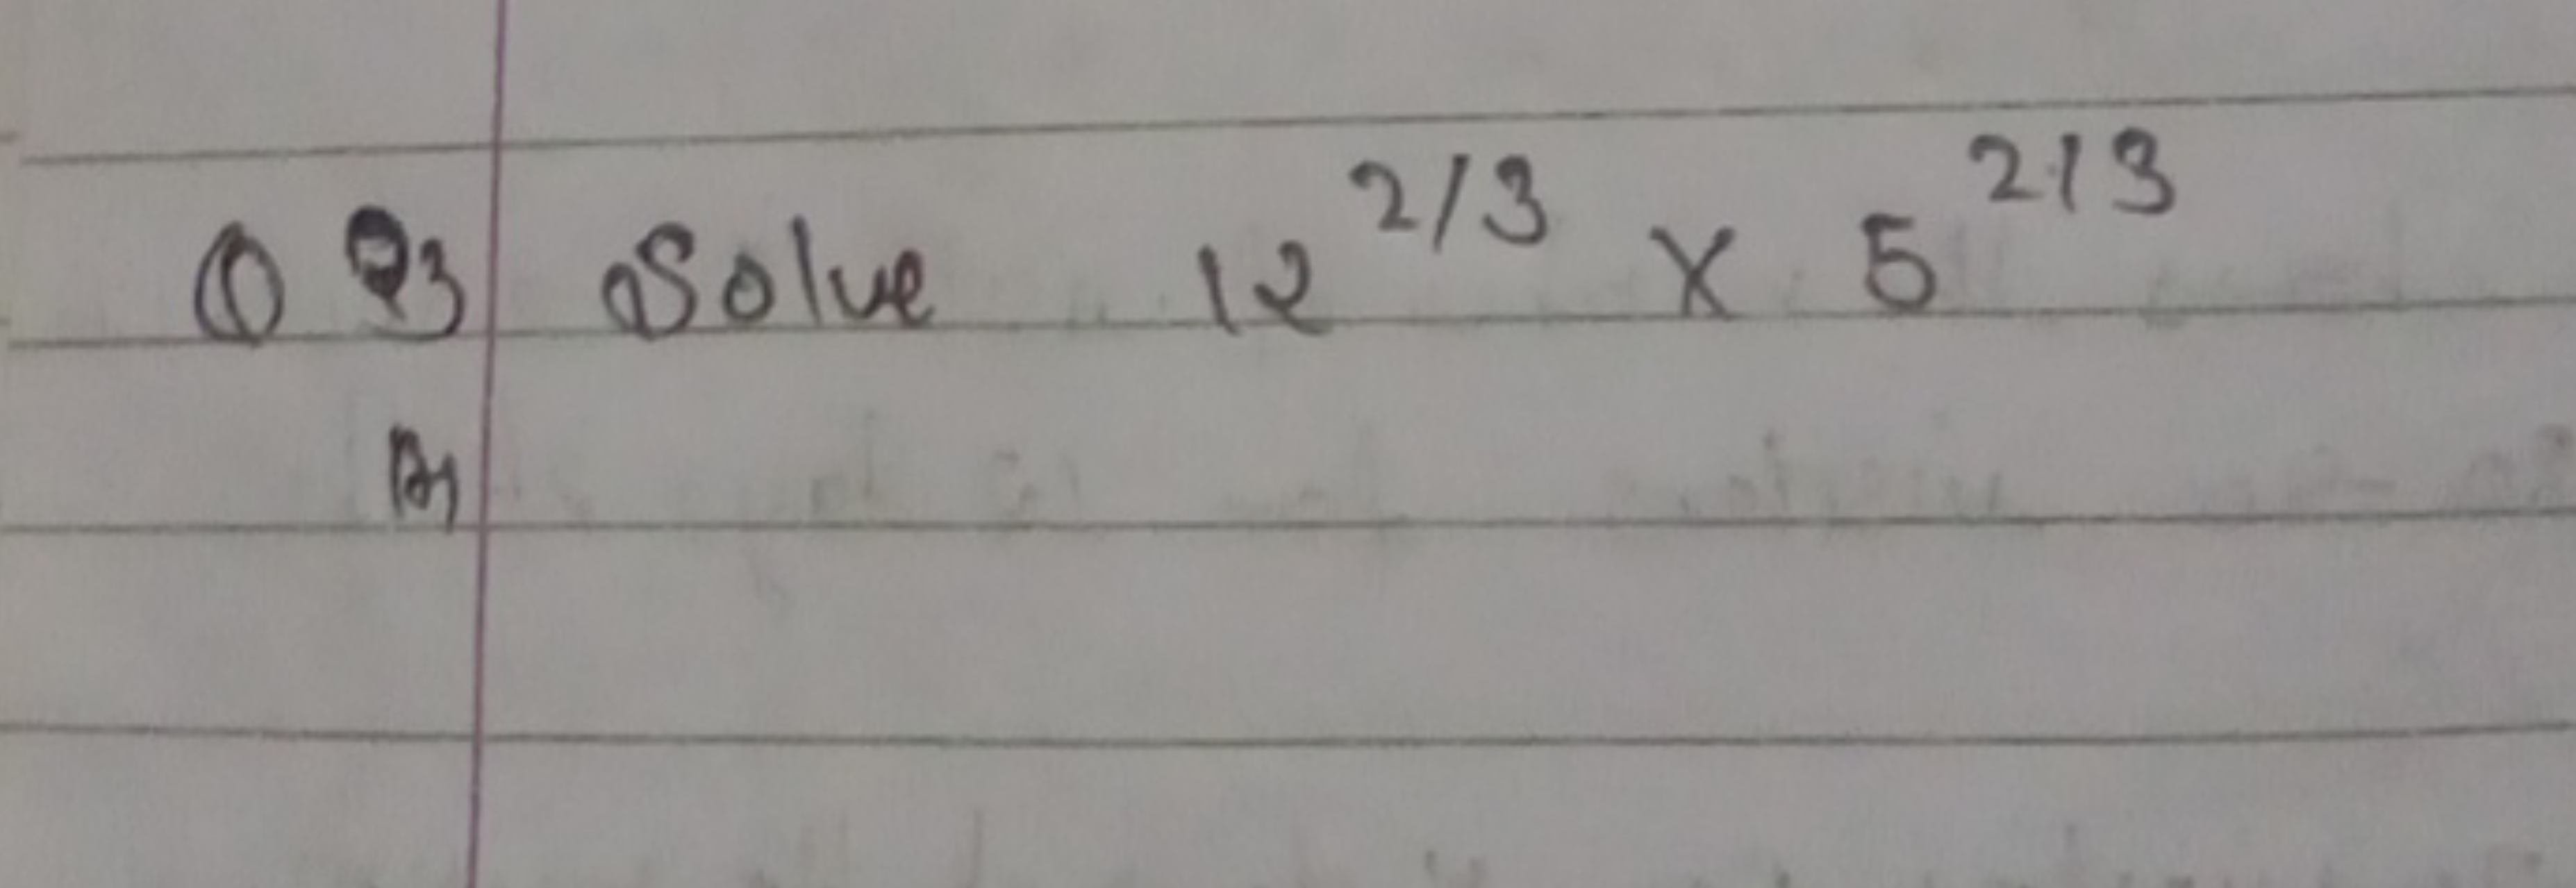 Q 3 Solve 12^2/3 x 5^2/3
A